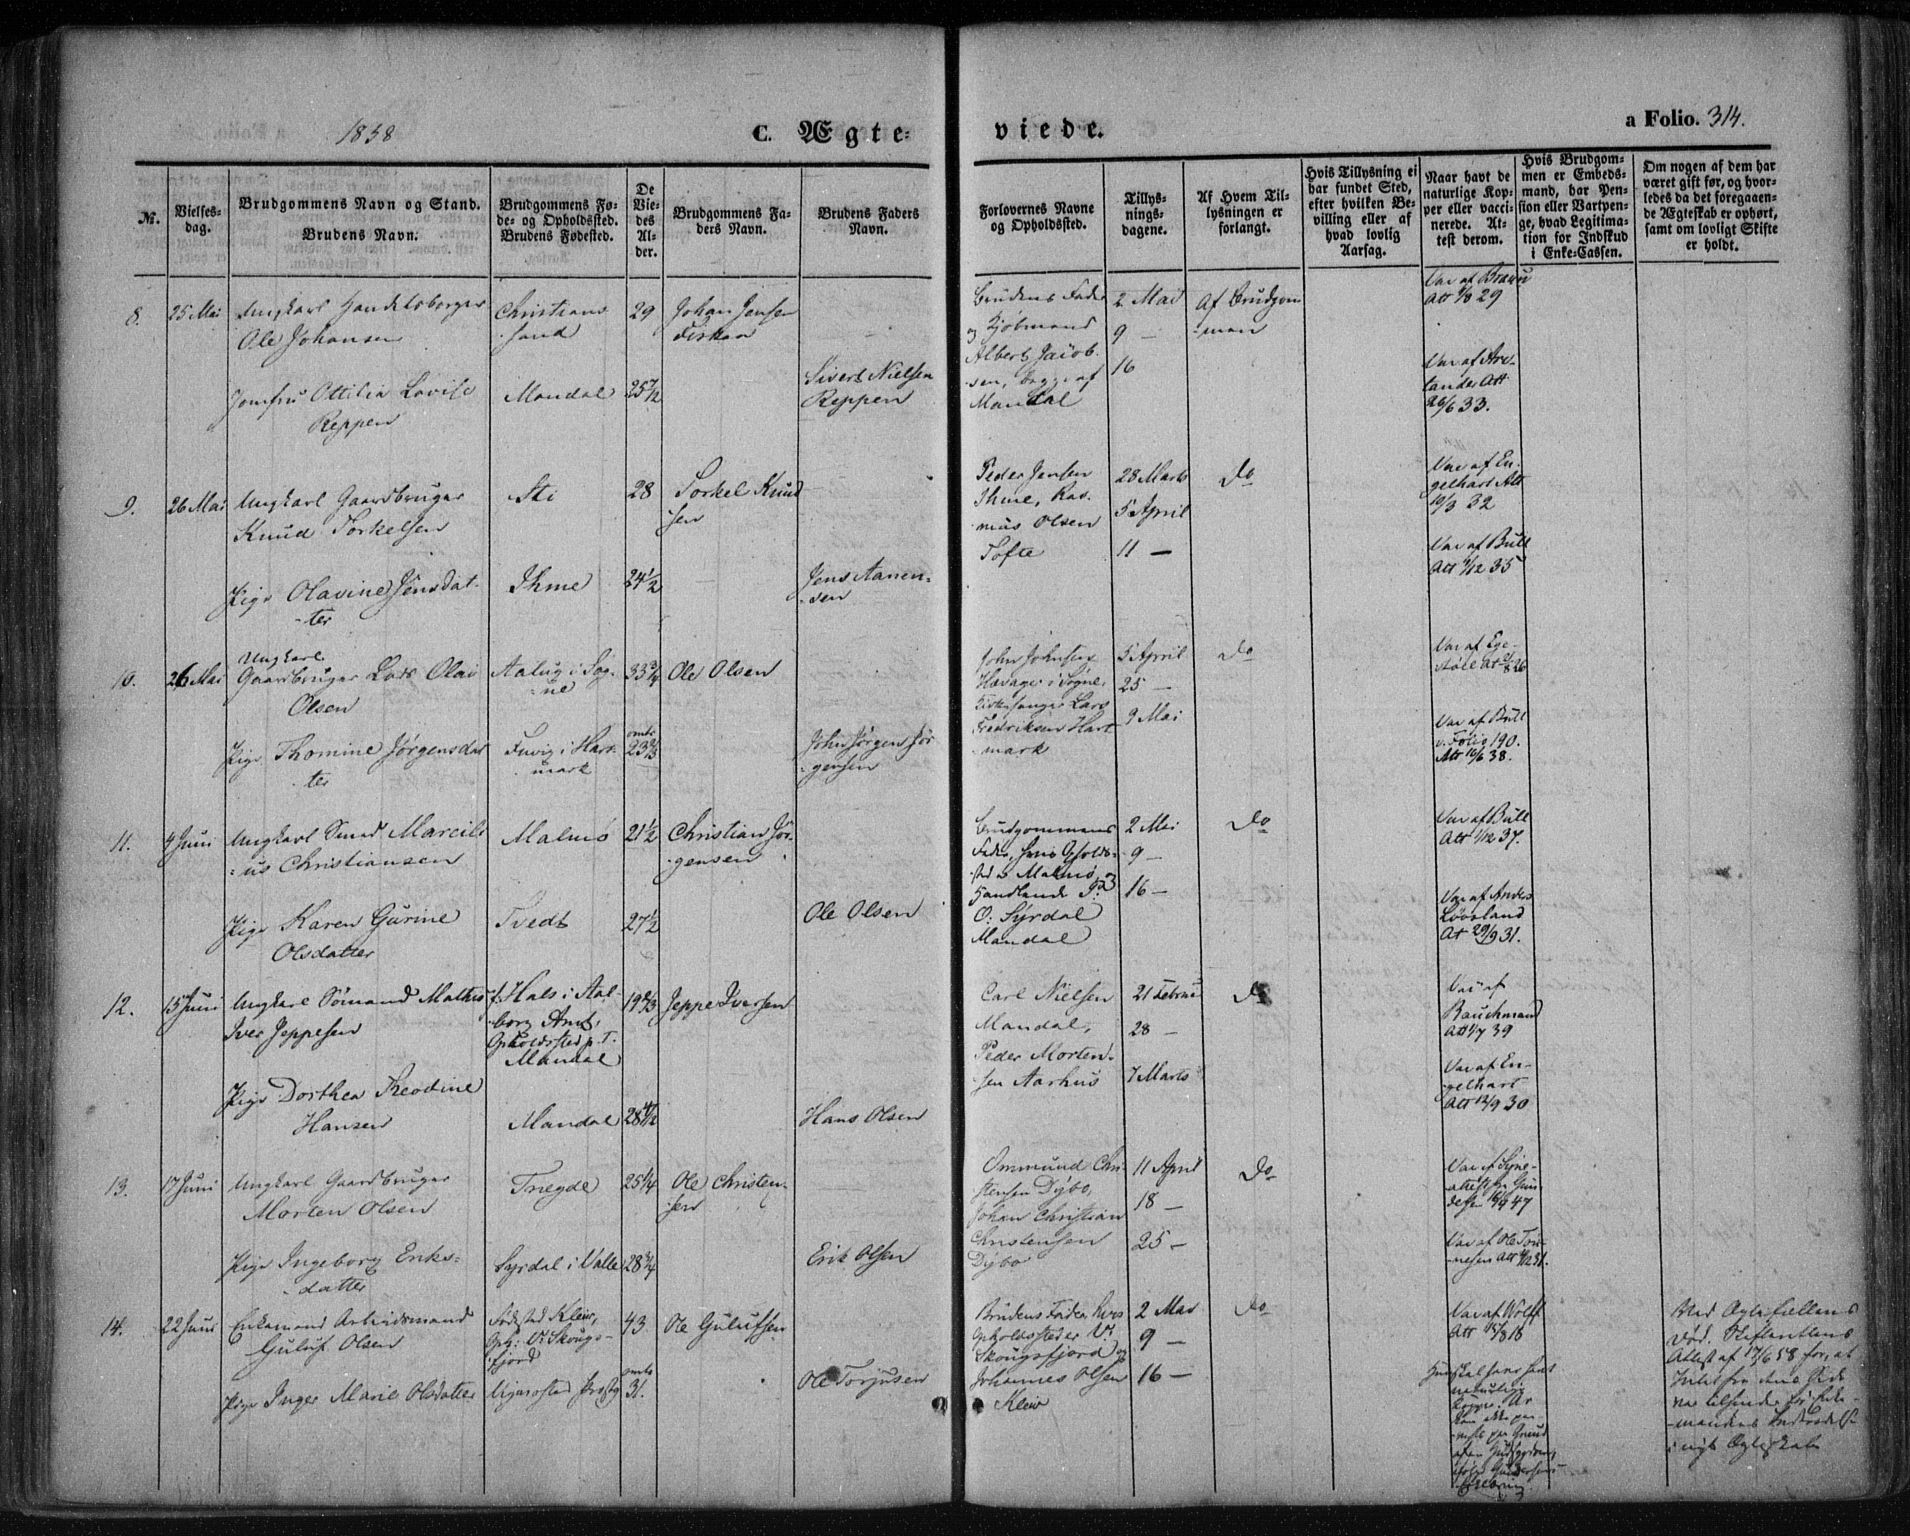 1858
C. Ægte-
viede.
a Folio. 314.
№.
Vielses-
dag.
Brudgommens Navn og Stand.
Brudens Navn.
Brudgommens Fø-
de- og Opholdssted.
Brudens Fødested.
De
Vie-
des
Al-
der.
Brudgommens Fa-
ders Navn.
Brudens Faders
Navn.
Forlovernes Navne
og Opholdssted.
Tillys-
nings-
dagene.
Af Hvem Til-
lysningen er
forlangt.
Hvis Tillysning ei
har fundet Sted,
efter hvilken Be-
villing eller af
hvad lovlig
Aarsag.
Naar havt de
naturlige Kop-
per eller vacci-
nerede. At-
test derom.
Hvis Brudgom-
men er Embeds-
mand, har Pen-
sion eller Vartpen-
ge, hvad Legitima-
tion for Indskud
i Enke-Cassen.
Om nogen af dem har
været gift før, og hvor-
ledes da det foregaaen-
de Ægteskab er ophørt,
samt om lovligt Skifte
er holdt.
8.
25 Mai
Ungkarl Handelsborger
Ole Johansen
Christians
sand
29
Johan Jensen
Brudens Fader
og Kjøbmand
Albert Jacob-
sen, begge af
Mandal
2 Mai
9 —
16
Af Brudgom
-men
Vac af Bravn
Att 1/8 29
Jomfru Ottilia Lovise
Reppen
Mandal
25 1/2
Sivert Nielsen
Reppen
Vac af Are-
lander Att
26/6 33.
9.
26 Mai
Ungkarl Gaardbruger
Knud Torkelsen
Sti
28
Torkel Knud
sen
Peder Jensen
Ihme, Ras-
mus Olsen
Tofte
28 Marts
5 April
11 —
Do
Vac af En-
gelhart Att
19/3 32
Pige Olavine Jensdat-
-ter
Ihme
24 1/2
Jens Aanen-
-sen
Vac af Bull
Att 1/12 35
10.
26 Mai
Ungkarl
Gaardbruger Lars Olai
Olsen
Aalug i Søg-
-ne
33 3/4
Ole Olsen
John Johnsen
Havager i Søgne,
Kirkesanger Lars
Fredriksen Hart
-mark
5 April
25 —
9 Mai
Do
Pige Thomine Jørgensdat
-ter
Fuvig i Hart-
mark
omtr
23 2/3
John Jørgen Jør
-gensen
Vac af Bull
v. Folio 190.
Att 16/6 38.
11.
4 Juni
Ungkarl Smed Marcili
-us Christiansen
Malmø
21 1/2
Christian Jør-
-gensen
Brudgommens
Fader, hvis Opholds-
sted er Malmø,
O: Syrdal
Mandal
2 Mai
9 —
16 —
Do
Vac af Bull
Att 1/12 37.
Pige Karen Gurine
Olsdatter
Tvedt
27 1/2
Ole Olsen
Vac af Anders
Løvsland
At 29/9 31.
12.
15 Juni
Ungkarl Sømand Mathis
Iver Jeppesen
f. Hals i Aal-
-borg Amt,
Opholdssted p. T.
Mandal
19 2/3
Jeppe Iversen
Carl Nielsen
Mandal,
Peder Morten-
sen Aarhus
21 Februa
28 —
7 Marts
Do
Vac af
Bauchmand
Att 1/7 39
Pige Dorthea Theodine
Hansen
Mandal
28 1/2
Hans Olsen
Vac af En-
-gelhart
Att 12/9 30
13.
17 Juni
Ungkarl Gaardbruger
Morten Olsen
Tregde
25 1/4
Ole Christen-
-sen
Ommund Chri-
stensen Dybo,
Johan Christian
Christensen
Dybo
11 April
18 —
25 —
Do
Pige Ingeborg Eriks-
-datter
Syrdal i Valle
28 3/4
Erik Olsen
Vac af Ole Tøn-
-nesen Att 1/12 31.
14.
22 Juni
Enkemand Arbeidsmand
Guluf Olsen
Fødested Kleiv,
Oph: Vt Skougs-
-fjord
43
Ole Gulufsen
Brudens Fader, hvis
Opholdssted er Vt
Skougsfjord og
Johannes Olsen
Kleiv
2 Mai
9 —
16 —
Do
Vac af Wolff
Att 15/8 18
Pige Inger Marie Olsdatter
omtr
31.
Ole Torjusen
naturlige
Kopper.
Ved Ægtefellens
Død. Skifterettens
Attest af 17/6 58 for, at
i nyt Ægteskab